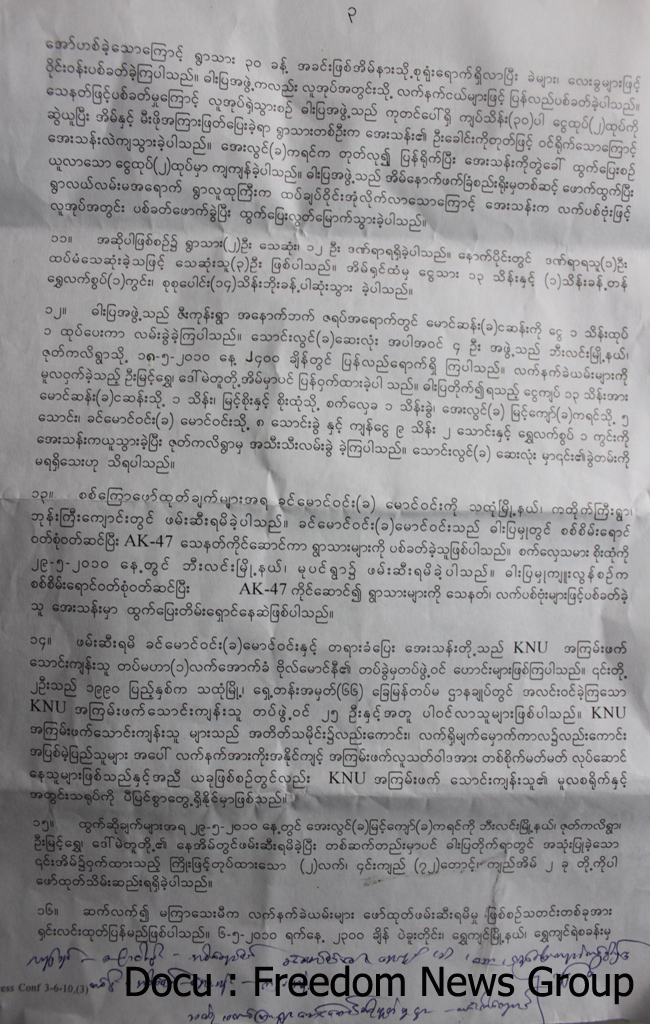 ၃
အော်ဟစ်ခဲ့သောကြောင့် ရွာသား ၃၀ ခန့် အခင်းဖြစ်အိမ်နားသို့ စုရုံးရောက်ရှိလာပြီး ခဲများ၊ လေးခွများဖြင့်
ဝိုင်းဝန်းပစ်ခတ်ခဲ့ကြပါသည်။ ဓါးပြအဖွဲ့ကလည်း လူအုပ်အတွင်းသို့ လက်နက်ငယ်များဖြင့် ပြန်လည်ပစ်ခတ်ခဲ့ပါသည်။
သေနတ်ဖြင့်ပစ်ခတ်မှုကြောင့် လူအုပ်ရှဲသွားစဉ် ဓါးပြအဖွဲ့သည် ကုတင်ပေါ်ရှိ ကျပ်သိန်း(၃၀)ပါ ငွေထုပ်(၂)ထုပ်ကို
ဆွဲယူပြီး အိမ်နှင့် မီးဖိုအကြားဖြတ်ပြေးခဲ့ရာ ရွာသားတစ်ဦးက အေးသန်း၏ ဦးခေါင်းကိုတုတ်ဖြင့် ဝင်ရိုက်သောကြောင့်
အေးသန်းလဲကျသွားခဲ့ပါသည်။ အေးလွင်(ခ)ကရင်က တုတ်လု၍ ပြန်ရိုက်ပြီး အေးသန်းကိုတွဲခေါ် ထွက်ပြေးစဉ်
ယူလာသော ငွေထုပ်(၂)ထုပ်မှာ ကျကျန်ခဲ့ပါသည်။ ဓါးပြအဖွဲ့သည် အိမ်နောက်ဖက်ခြံစည်းရိုးမှတစ်ဆင့် ဖောက်ထွက်ပြီး
ရွာလယ်လမ်းမအရောက် ရွာလူထုကြီးက ထပ်ချပ်ဝိုင်းအုံလိုက်လာသောကြောင့် အေးသန်းက လက်ပစ်ဗုံးဖြင့်
လူအုပ်အတွင်း ပစ်ခတ်ဖောက်ခွဲပြီး ထွက်ပြေးလွတ်မြောက်သွားခဲ့ပါသည်။
၁၁။ အဆိုပါဖြစ်စဉ်၌ ရွာသား(၂)ဦး သေဆုံး၊ ၁၂ ဦး ဒဏ်ရာရရှိခဲ့ပါသည်။ နောက်ပိုင်းတွင် ဒဏ်ရာရသူ(၁)ဦး
ထပ်မံသေဆုံးခဲ့သဖြင့် သေဆုံးသူ(၃)ဦး ဖြစ်ပါသည်။ အိမ်ရှင်ထံမှ ငွေသား ၁၃ သိန်းနှင့် (၁)သိန်းခန့်တန်
ရွှေလက်စွပ်(၁)ကွင်း၊ စုစုပေါင်း(၁၄)သိန်းဘိုးခန့်ပါဆုံးသွား ခဲ့ပါသည်။
၁၂။ ဓါးပြအဖွဲ့သည် ဇီးကုန်းရွာ အနောက်ဘက် ဇရပ်အရောက်တွင် မောင်ဆန်း(ခ)ငဆန်းကို ငွေ ၁ သိန်းထုပ်
၁ ထုပ်ပေးကာ လမ်းခွဲခဲ့ကြပါသည်။ သောင်းလွင်(ခ)ဆေးလုံး အပါအဝင် ၄ ဦး အဖွဲ့သည် ဘီးလင်းမြို့နယ်၊
ဇုတ်ကလိရွာသို့ ၁၈-၅-၂၀၁၀ နေ့ ၂၄၀၀ ချိန်တွင် ပြန်လည်ရောက်ရှိ ကြပါသည်။ လက်နက်ခဲယမ်းများကို
မူလဝှက်ခဲ့သည့် ဦးမြင့်ရွှေ၊ ဒေါ်မဲတူတို့အိမ်မှာပင် ပြန်ဝှက်ထားခဲ့ပါ သည်။ ဓါးပြတိုက်၍ရသည့် ငွေကျပ် ၁၃ သိန်းအား
မောင်ဆန်း(ခ)ငဆန်းသို့ ၁ သိန်း၊ မြင့်စိုးနှင့် စိုးထုံသို့ စက်လှေခ ၁ သိန်းခွဲ၊ အေးလွင်(ခ) မြင့်ကျော်(ခ)ကရင်သို့ ၅
သောင်း၊ ခင်မောင်ဝင်း(ခ) မောင်ဝင်းသို့ ၈ သောင်းခွဲ နှင့် ကျန်ငွေ ၉ သိန်း ၂ သောင်းနှင့် ရွှေလက်စွပ် ၁ ကွင်းကို
အေးသန်းကယူသွားခဲ့ပြီး ဇုတ်ကလိရွာမှ အသီးသီးလမ်းခွဲ ခဲ့ကြပါသည်။ သောင်းလွင်(ခ) ဆေးလုံး မှာ၎င်း၏ခွဲတမ်းကို
မရရှိသေးဟု သိရပါသည်။
၁၃။ စစ်ကြောဖော်ထုတ်ချက်များအရ ခင်မောင်ဝင်း(ခ) မောင်ဝင်းကို သထုံမြို့နယ်၊ ကထိုက်ကြီးရွာ၊
ဘုန်းကြီးကျောင်းတွင် ဖမ်းဆီးရမိခဲ့ပါသည်။ ခင်မောင်ဝင်း(ခ)မောင်ဝင်းသည် ဓါးပြမှုတွင် စစ်စိမ်းရောင်
ဝတ်စုံဝတ်ဆင်ပြီး AK-47 သေနတ်ကိုင်ဆောင်ကာ ရွာသားများကို ပစ်ခတ်ခဲ့သူဖြစ်ပါသည်။ စက်လှေသမား စိုးထုံကို
၂၉-၅-၂၀၁၀ နေ့တွင် ဘီးလင်းမြို့နယ်၊ မုပင်ရွာ၌ ဖမ်းဆီးရမိခဲ့ပါသည်။ ဓါးပြမှုကျူးလွန်စဉ်က
စစ်စိမ်းရောင်ဝတ်စုံဝတ်ဆင်ပြီး AK-47 ကိုင်ဆောင်၍ ရွာသားများကို သေနတ်၊ လက်ပစ်ဗုံးများဖြင့်ပစ်ခတ်ခဲ့
သူ အေးသန်းမှာ ထွက်ပြေးတိမ်းရှောင်နေဆဲဖြစ်ပါသည်။
၁၄။ ဖမ်းဆီးရမိ ခင်မောင်ဝင်း(ခ)မောင်ဝင်းနှင့် တရားခံပြေး အေးသန်းတို့သည် KNU အကြမ်းဖက်
သောင်းကျန်းသူ တပ်မဟာ(၁)လက်အောက်ခံ ဗိုလ်မောင်နီ၏ တပ်ခွဲမှတပ်ဖွဲ့ဝင် ဟောင်းများဖြစ်ကြပါသည်။ ၎င်းတို့
၂ဦးသည် ၁၉၉၀ ပြည့်နှစ်က သထုံမြို့၊ ရှေ့တန်းအမှတ်(၆၆) ခြေမြန်တပ်မ ဌာနချုပ်တွင် အလင်းဝင်ခဲ့ကြသော
KNU အကြမ်းဖက်သောင်းကျန်းသူ တပ်ဖွဲ့ဝင် ၂၅ ဦးနှင့်အတူ ပါဝင်လာသူများဖြစ်ပါသည်။ KNU
အကြမ်းဖက်သောင်းကျန်းသူ များသည် အတိတ်သမိုင်း၌လည်းကောင်း၊ လက်ရှိမျက်မှောက်ကာလ၌လည်းကောင်း
အပြစ်မဲ့ပြည်သူများ အပေါ် လက်နက်အားကိုးအနိုင်ကျင့် အကြမ်းဖက်လူသတ်ဝါဒအား တစ်စိုက်မတ်မတ် လုပ်ဆောင်
နေသူများဖြစ်သည်နှင့်အညီ ယခုဖြစ်စဉ်တွင်လည်း KNU အကြမ်းဖက် သောင်းကျန်းသူ၏ မူလစရိုက်နှင့်
အတွင်းသရုပ်ကို ပီပြင်စွာတွေ့ရှိနိုင်မှာဖြစ်သည်။
၁၅။ ထွက်ဆိုချက်များအရ ၂၉-၅-၂၀၁၀ နေ့တွင် အေးလွင်(ခ)မြင့်ကျော်(ခ)ကရင်ကို ဘီးလင်းမြို့နယ်၊ ဇုတ်ကလိရွာ၊
ဦးမြင့်ရွှေ၊ ဒေါ်မဲတူတို့၏ နေအိမ်တွင်ဖမ်းဆီးရမိခဲ့ပြီး တစ်ဆက်တည်းမှာပင် ဓါးပြတိုက်ရာတွင် အသုံးပြုခဲ့သော
၎င်းအိမ်၌ဝှက်ထားသည့် ကြိုးဖြင့်တုပ်ထားသော (၂)လက်၊ ၎င်းကျည် (၇၂)တောင့်၊ ကျည်အိမ် ၂ ခု တို့ကိုပါ
ဖော်ထုတ်သိမ်းဆည်းရရှိခဲ့ပါသည်။
၁၆။ ဆက်လက်၍ မကြာသေးမီက လက်နက်ခဲယမ်းများ ဖော်ထုတ်ဖမ်းဆီးရမိမှု ဖြစ်စဉ်သတင်းတစ်ခုအား
ရှင်းလင်းထုတ်ပြန်မည်ဖြစ်ပါသည်။ ၆-၅-၂၀၁၀ ရက်နေ့ ၂၃၀၀ ချိန် ပဲခူးတိုင်း၊ ရွှေကျင်မြို့နယ်၊ ရွှေကျင်ရဲစခန်းမှ
ess Conf 3-6-10,(3)
Docu : Freedom News Group